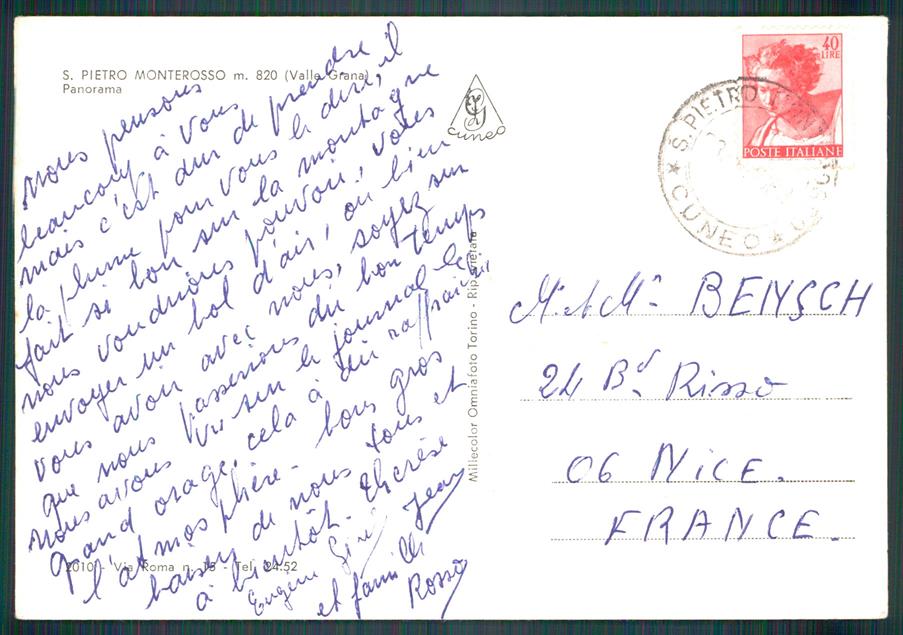 S. PIETRO MONTEROSSO m. 820 (Valle Grana)
Panorama
CUNEO
40
LIRE
POSTE ITALIANE
S. PIETRO
CUNEO
nous pensons
beaucoup à vous
mais c'est dur de prendre
la plume pour vous le dire, il
fait si bon sur la montagne
nous voudrions pouvoir, votes
envoyer un bol d'air, ou bien
vous avoir avec nous, soyez sur
que nous passerions du bon temps
nous avons vu sur le journal le
grand orage, cela à du raffraichir
l'atmosphère. bons gros
baisers de nous tous et
à bientôt. Thérèse
Eugène Jean
et famille
Rosso
Millecolor Omniafoto Torino - Rip. vietata
12010 - Via Roma n. 15 - Tel. 24.52
Mr et Me BENSCH
24 Bd Risso
06 NICE.
FRANCE.